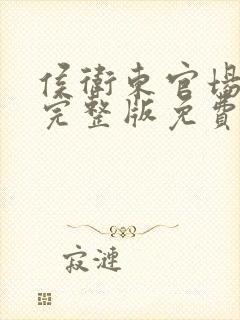 侯衛東官場
完整版免費
寂漣